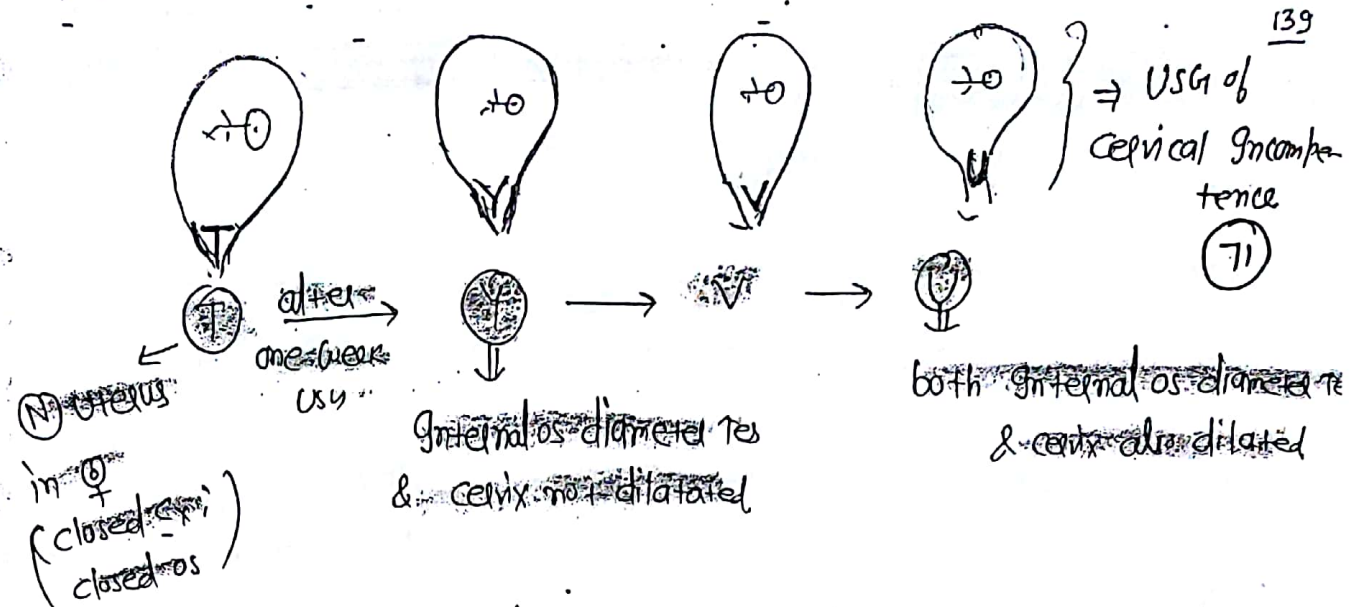 139
T
Y
V
U
⇒ USG of
cervical Incompe-
tence
71
T
after
one week
USG
→
Y
→
V
→
U
(N) uterus
in ♀
(closed Cx
closed os)
Internal os diameter ↑es
& cervix not dilatated
both Internal os diameter ↑e
& cervix also dilated